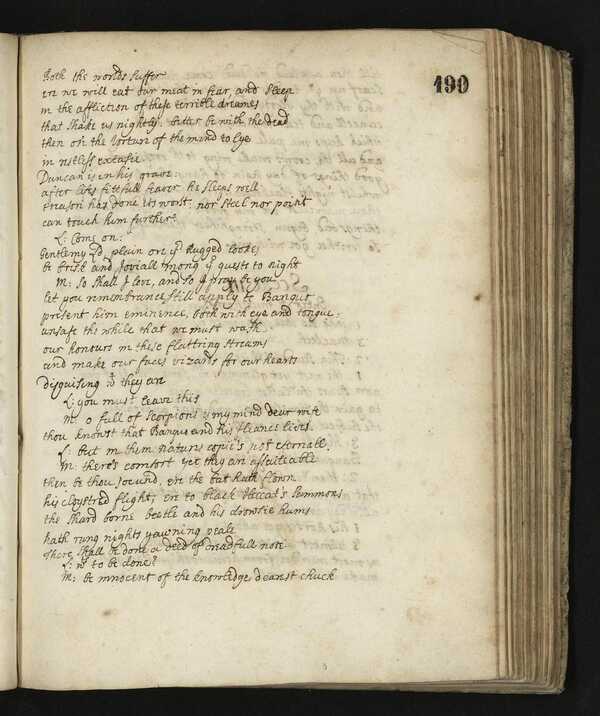 190
Both the worlds suffer
ere we will eat our meat in fear, and sleep
in the affliction of these terrible dreames
that shake us nightly. better be with the dead
then on the torture of the mind to lye
in restless extasie
Duncan is in his grave
after lifes fittfull feaver he sleeps well
treason has done its worst, nor steel nor
can touch him further.
L: Come on:
Gentle my Ld, plain ore yr Rugged lookes
be brisk and Joviall among yr guests to night
M: so shall I love, and so I pray be you
let you remembrance still apply to Banquo
present him eminence, both with eye and tongue.
unsafe the while that we must wash
our honours in these flattring streams
and make our faces vizards for our hearts
disguising wt they are
L: you must leave this
M: o full of Scorpions is my mind dear wife
thou knowst that Banquo and his fleance lives.
L: but in them natures copie's not eternall.
M: there's comfort yet they are assaileable
then be thou jocund, ere the bat hath flown
his cloystred flight; ere to black Heccat's summons
the shard borne beetle and his drowsie hums
hath rung nights yawning peale
there shall be done a deed of dreadfull note
L: wt to be done?
M: be innocent of the knowledge dearest chuck